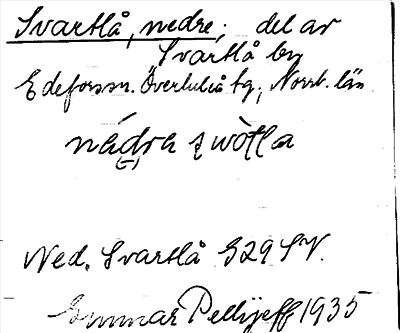 Svartlå, nedre; del av
Svartlå by
Edeforssn. Överluleå tg., Norrb. län
nádra
Ned. Svartlå S29 SV.
Gunnar Pellijeff 1935